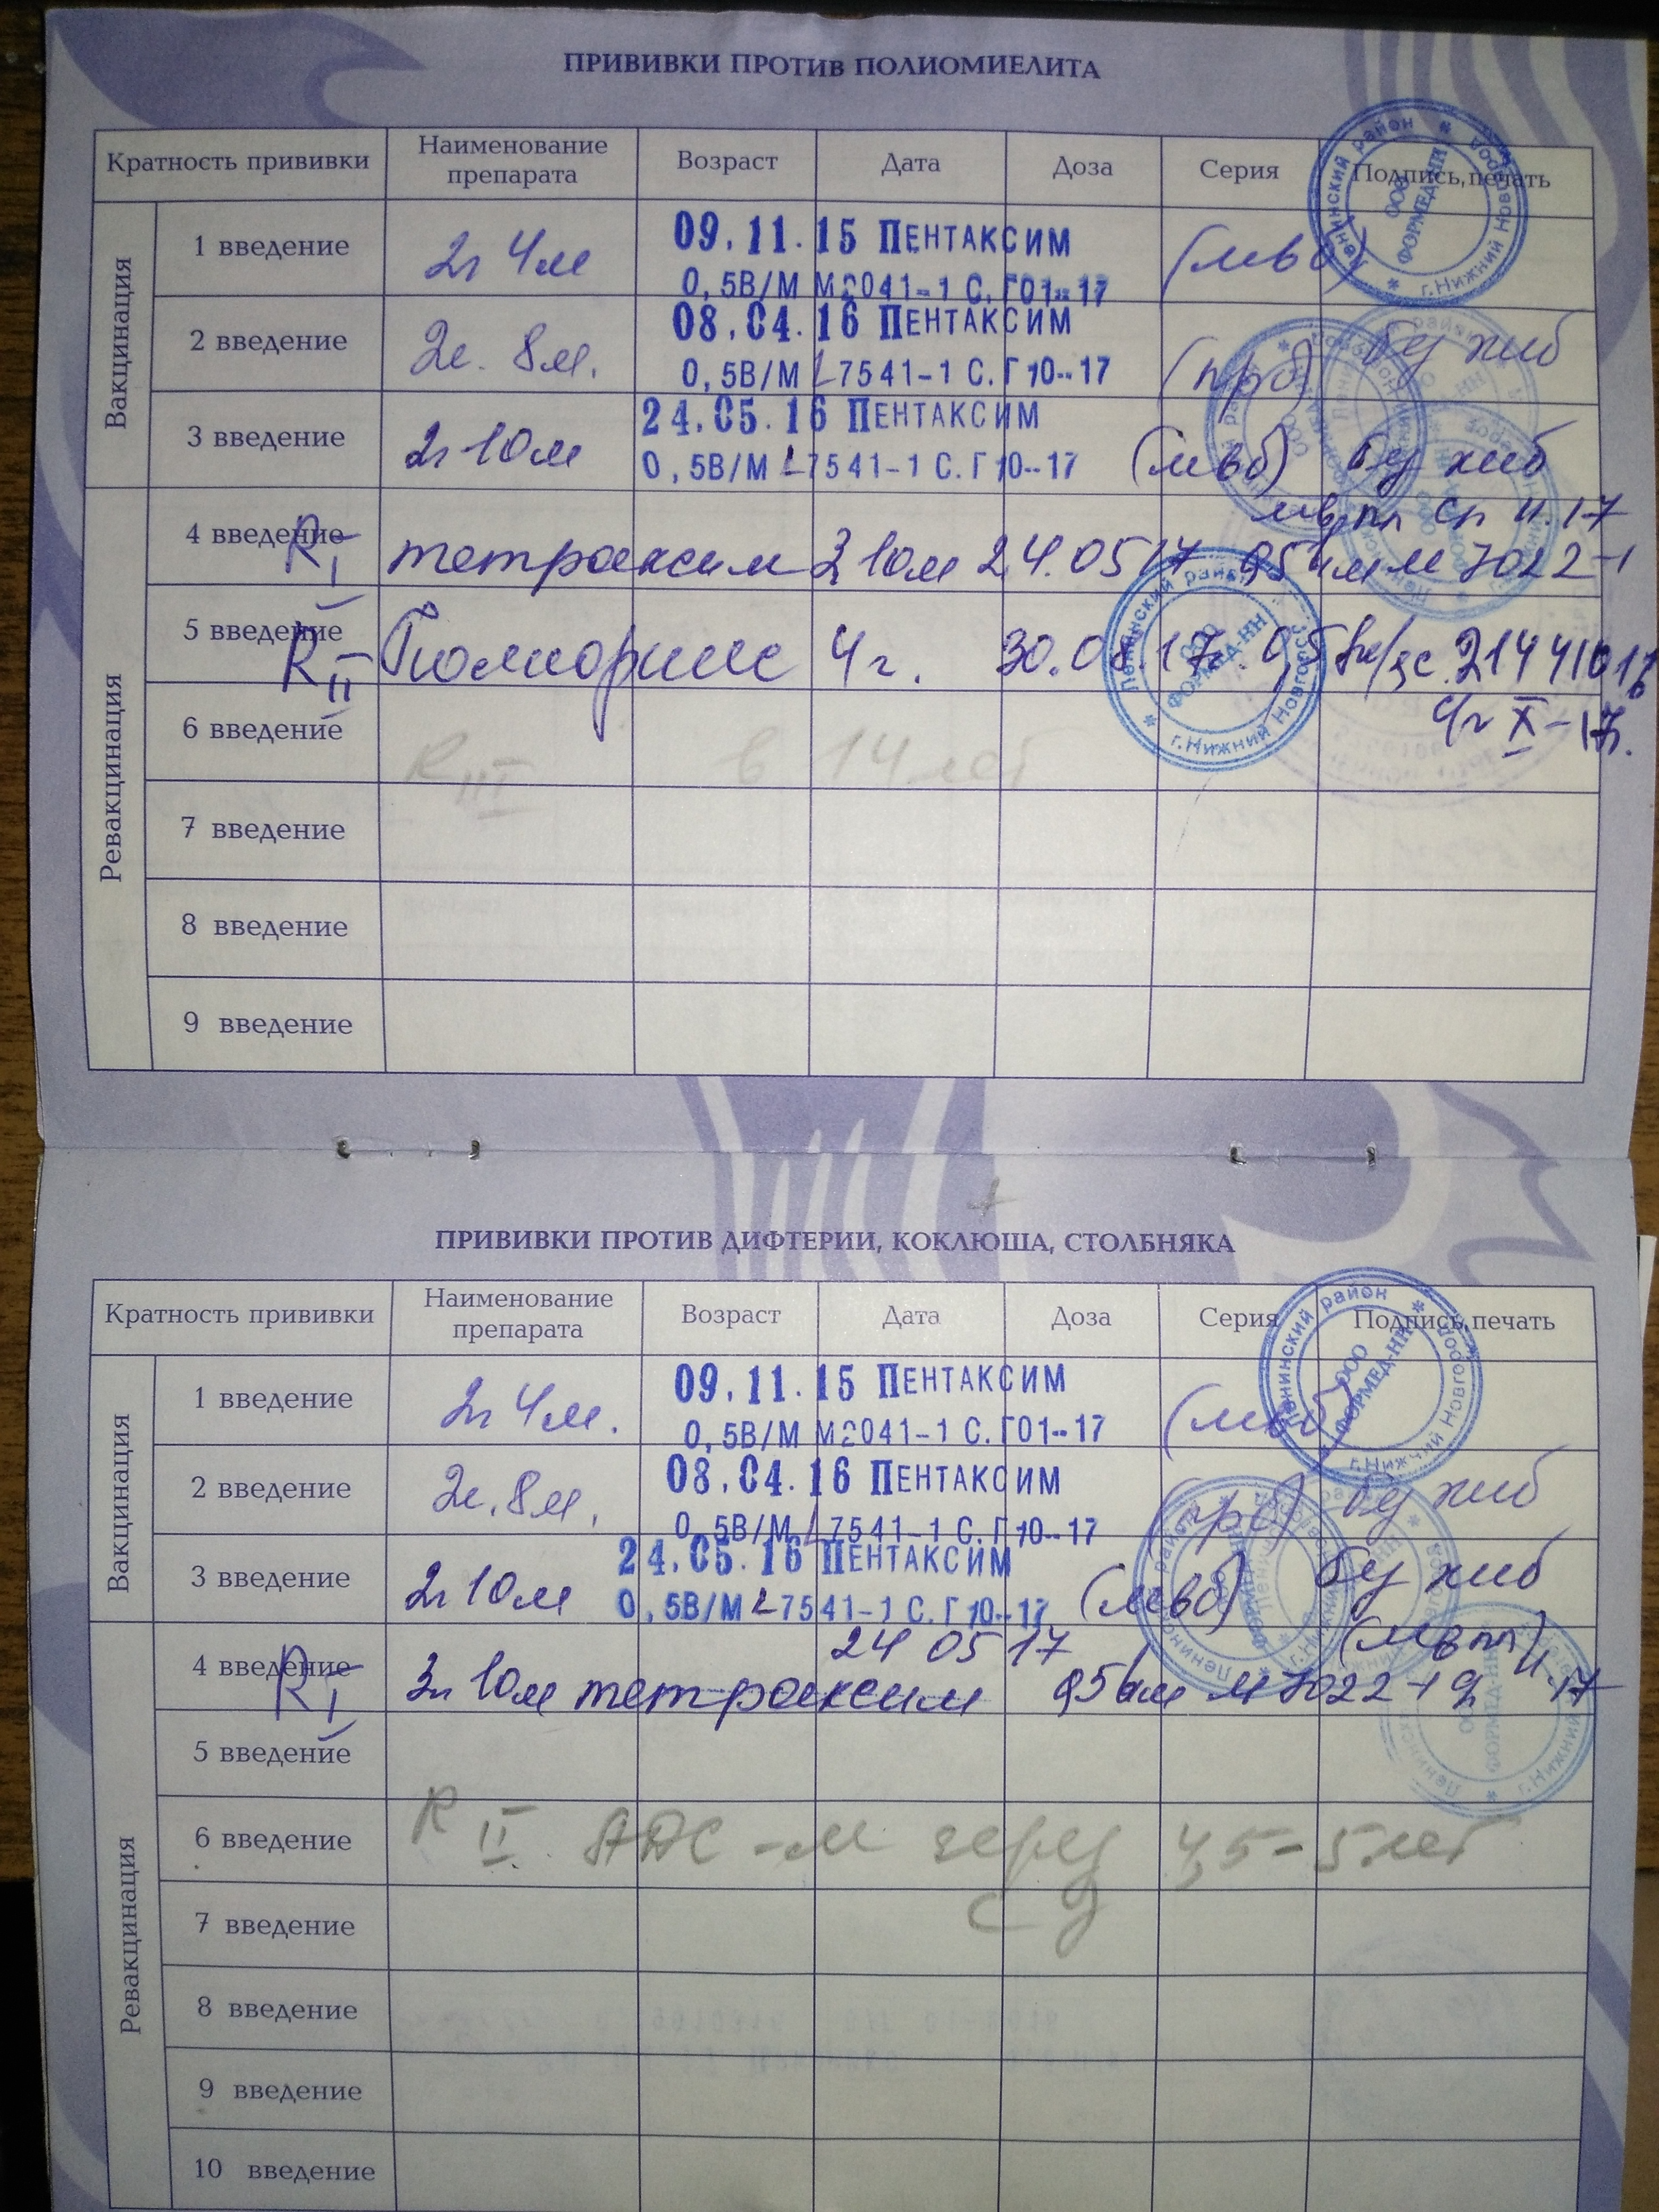 ПРИВИВКИ ПРОТИВ ПОЛИОМИЕЛИТА
Кратность прививки Наименование препарата Возраст Дата Доза Серия Подпись, печать
Вакцинация
1 введение 2г 4м 09.11.15 ПЕНТАКСИМ
0,5В/М М2041-1 С.Г01-17 (лвб)
2 введение 2г. 8м. 08.04.16 ПЕНТАКСИМ
0,5В/М L7541-1 С.Г10-17 (прб) бу хиб
3 введение 2г 10м 24.05.16 ПЕНТАКСИМ
0,5В/М L7541-1 С.Г10-17 (лвб) бу хиб
Ревакцинация
4 введение RI тетраксим 3г 10м 24.05 17 0,5 в/м М 7022-1
11.17
5 введение RII Полиорикс 4г. 30.08.17г. 0,5 в/м с.
X-17г.
6 введение RIII в 14 лет
7 введение
8 введение
9 введение
Ленинский район г.Нижний Новгород ООО ФОРМЕД-НН
Ленинский район г.Нижний Новгород ООО ФОРМЕД-НН
ПРИВИВКИ ПРОТИВ ДИФТЕРИИ, КОКЛЮША, СТОЛБНЯКА
Кратность прививки Наименование препарата Возраст Дата Доза Серия Подпись, печать
Вакцинация
1 введение 2г 4м. 09.11.15 ПЕНТАКСИМ
0,5В/М М2041-1 С.Г01-17 (лвб)
2 введение 2г. 8м. 08.04.16 ПЕНТАКСИМ
0,5В/М L7541-1 С.Г10-17 (прб) бу хиб
3 введение 2г 10м 24.05.16 ПЕНТАКСИМ
0,5В/М L7541-1 С.Г10-17 (лвб) бу хиб
Ревакцинация
24 05 17
4 введение RI 3г 10м тетраксим 0,5 в/м М 7022-1
5 введение
6 введение RII АДС-М через 4,5-5 лет
7 введение
8 введение
9 введение
10 введение
Ленинский район г.Нижний Новгород ООО ФОРМЕД-НН